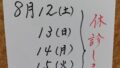 8月12(土)
13(日)
14(月)
15(火)
休診!